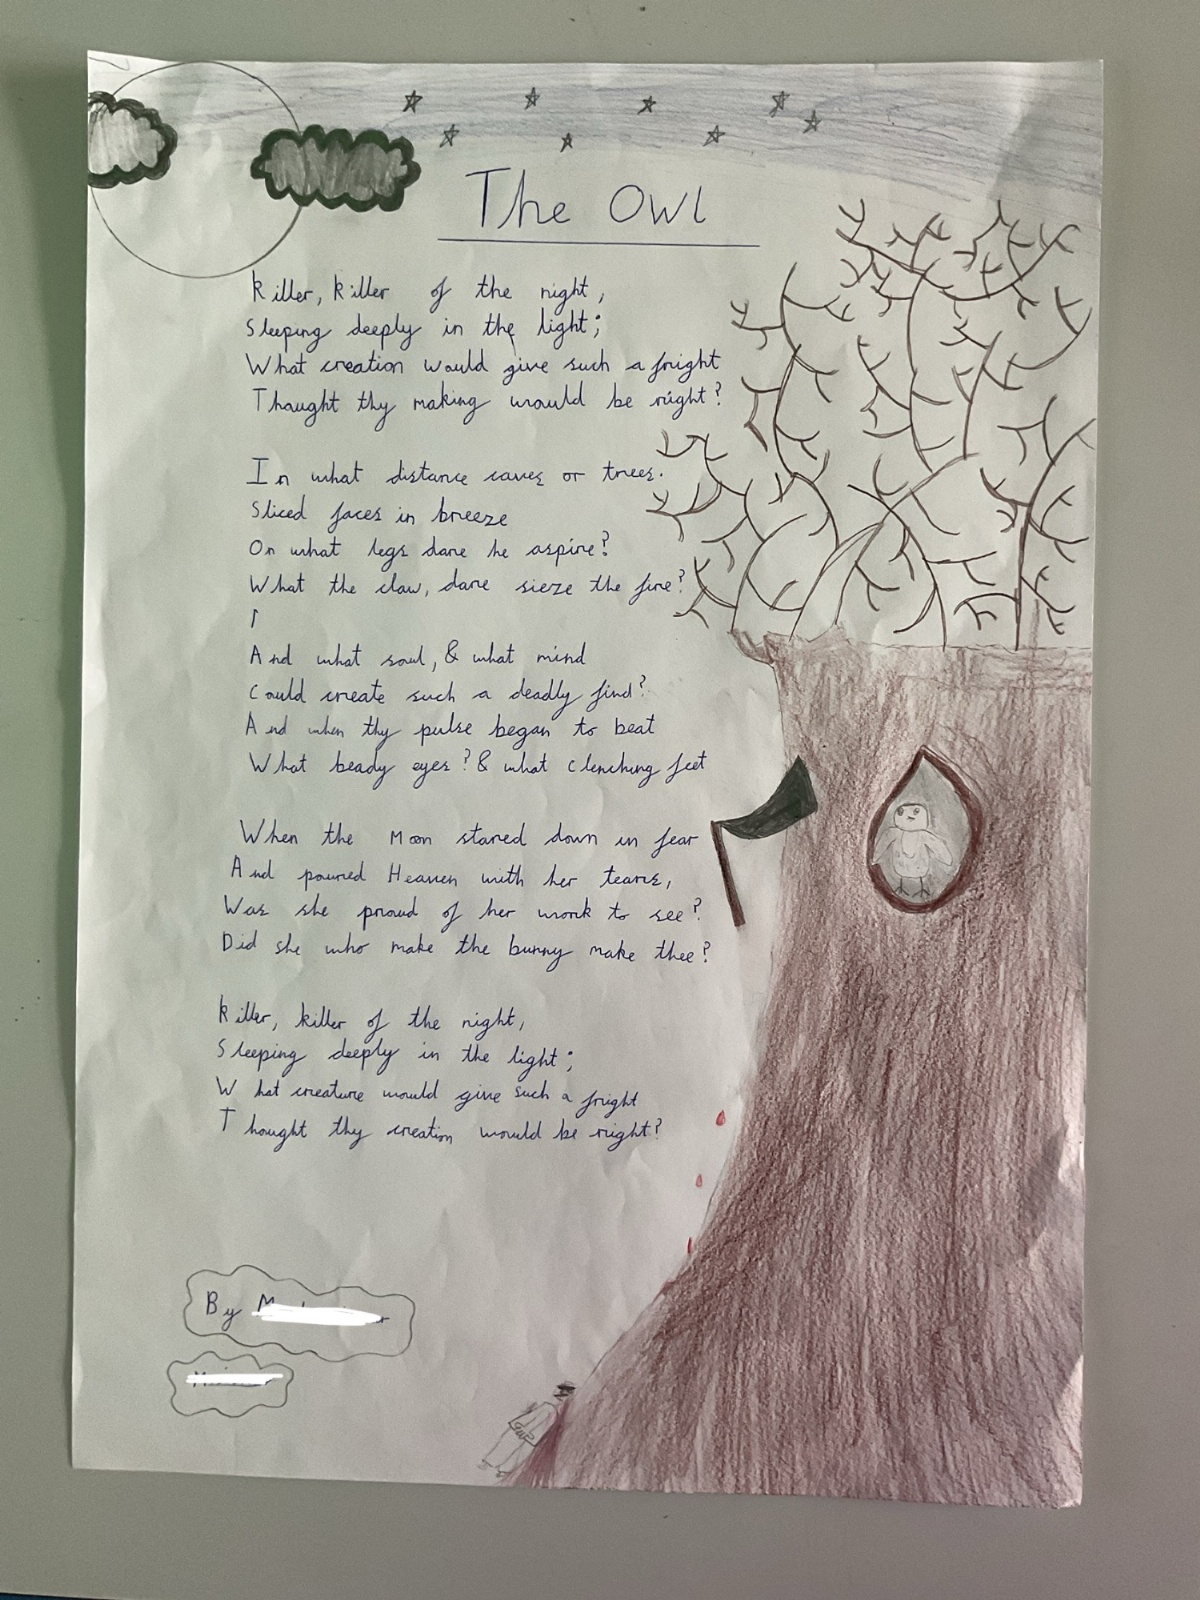 The Owl
Killer, killer of the night,
Sleeping deeply in the light;
What creation would give such a fright
Thought thy making would be right?
In what distance caves or trees.
Sliced faces in breeze
On what legs dare he aspire?
What the claw, dare sieze the fire?
And what soul, & what mind
Could create such a deadly find?
And when thy pulse began to beat
What beady eyes? & what clenching feet
When the Moon stared down in fear
And poured Heaven with her tears,
Was she proud of her work to see?
Did she who make the bunny make thee?
Killer, killer of the night,
Sleeping deeply in the light;
What creature would give such a fright
Thought thy creation would be right?
By